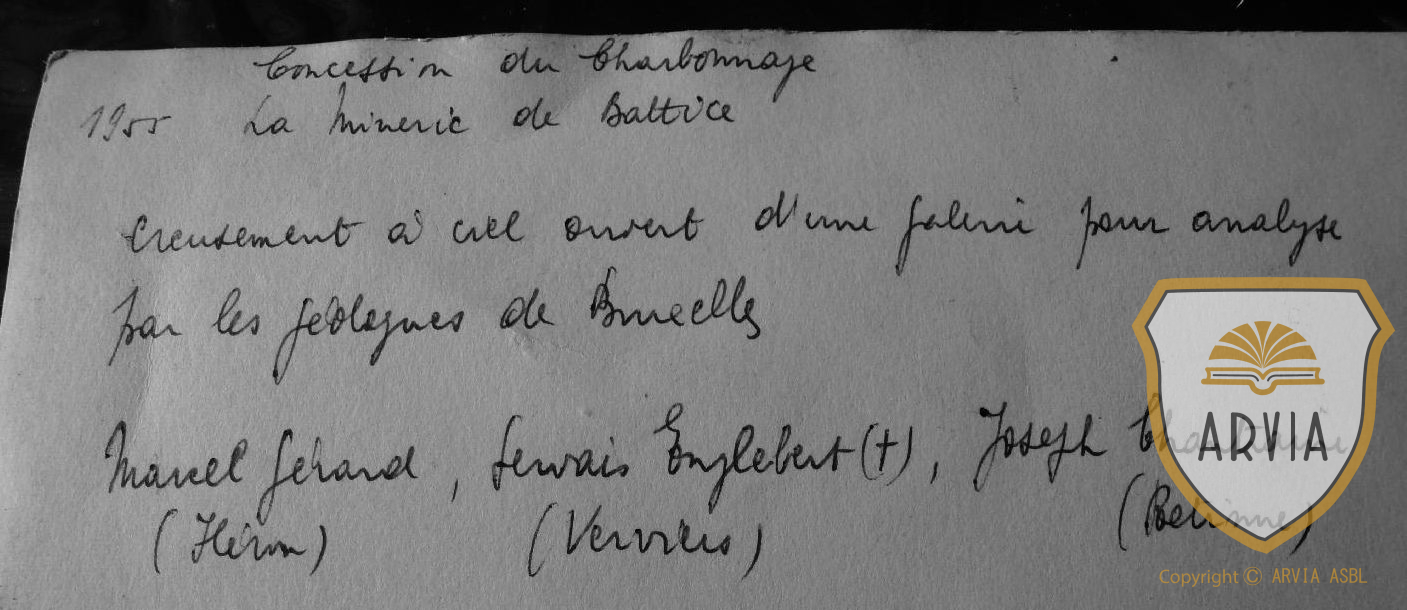 Concession du Charbonnage
1955 La Minerie de Battice
Creusement à ciel ouvert d'une galerie pour analyse
par les géologues de Bruxelles
Marcel Gérard, Servais Englebert (†), Joseph
(Héron) (Verviers) (Retinne)
ARVIA
Copyright © ARVIA ASBL